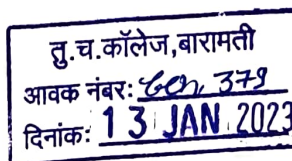 तु.च.कॉलेज,बारामती
आवक नंबर: 379
दिनांक: 13 JAN 2023